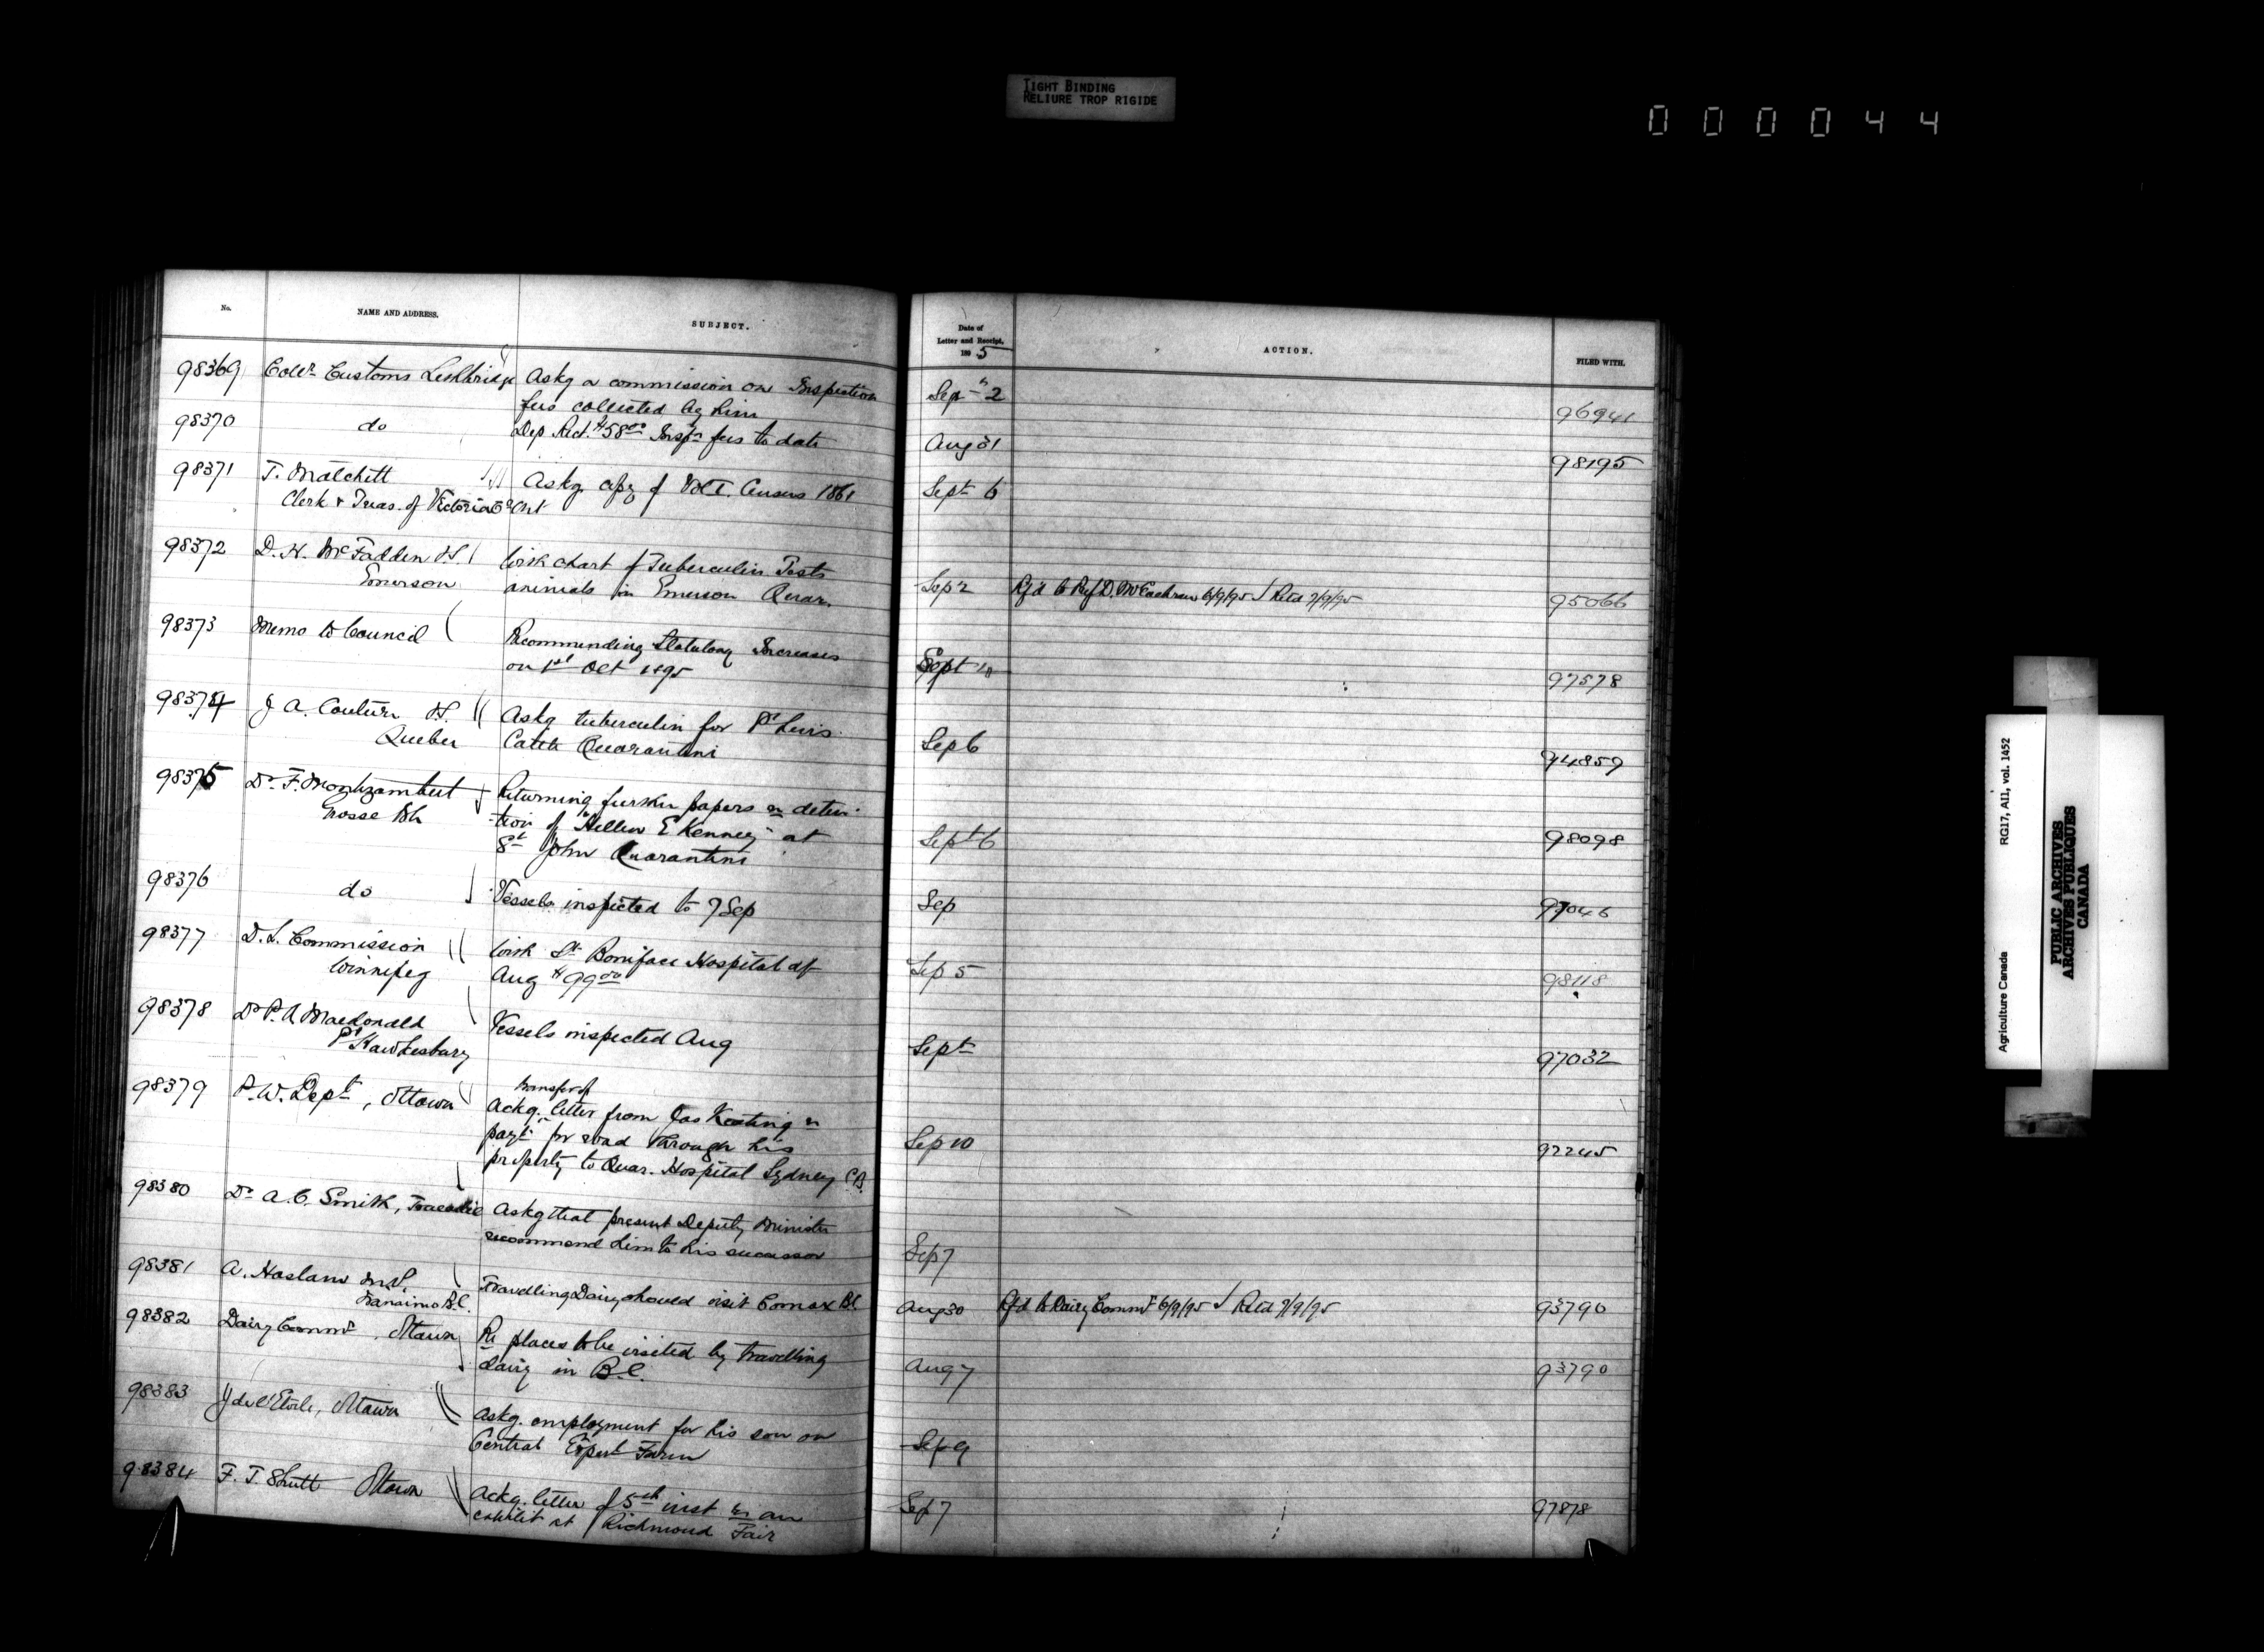 TIGHT BINDING
RELIURE TROP RIGIDE
000044
No. NAME AND ADDRESS. SUBJECT. Date of Letter and Receipt, 1895 ACTION. FILED WITH.
98369 Collr Customs Lethbridge Askg a commission on Inspection Sept 2
fees collected by him 96941
98370 do Dep Rect. $58.00 Inspn fees to date Aug 31 98195
98371 T. Matchett Askg copy of Vol I. Census 1861 Sept 6
Clerk & Treas. of Victoria Co Ont
98372 D. H. McFadden V.S. With chart of Tuberculin Tests
Emerson animals in Emerson Quar. Sep 2 Rfd to Prof D. McEachran 6/9/95 / Retd 7/9/95 95066
98373 Memo to Council Recommending Statutory Increases
on 1st Oct 1895 Sept 10 97578
98374 J A. Couture V.S. Askg tuberculin for Pt Levis
Quebec Cattle Quarantine Sep 6 94859
98375 Dr F. Montizambert Returning further papers re deten-
Grosse Isle tion of "Hellen E Kenney" at
St John Quarantine Sept 6 98098
98376 do Vessels inspected to 7 Sep Sep 97046
98377 D. L. Commission With St Boniface Hospital a/c
Winnipeg Aug $99.00 Sep 5 98118
98378 Dr P. A Macdonald Vessels inspected Aug
Pt Hawkesbury Sept 97032
98379 P. W. Dept, Ottawa transfer of
Ackg. letter from Jas Keating re
payt for road through his Sep 10 92245
property to Quar. Hospital Sydney C.B.
98380 Dr A. C. Smith, Tracadie Askg that present Deputy Minister
recommend him to his successor Sep 7
98381 A. Haslam M.P. Travelling Dairy should visit Comox B.C. Aug 30 Rfd to Dairy Commr 6/9/95 / Retd 7/9/95 93790
Nanaimo B.C.
98382 Dairy Commr, Ottawa Re places to be visited by travelling
dairy in B.C. Aug 7 93790
98383 J de l'Etoile, Ottawa Askg. employment for his son on
Central Expert Farm Sep 9
98384 F. T. Shutt Ottawa Ackg. letter of 5th inst re an
exhibit at Richmond Fair Sep 7 97878
Agriculture Canada RG17, AII, vol. 1452
PUBLIC ARCHIVES
ARCHIVES PUBLIQUES
CANADA